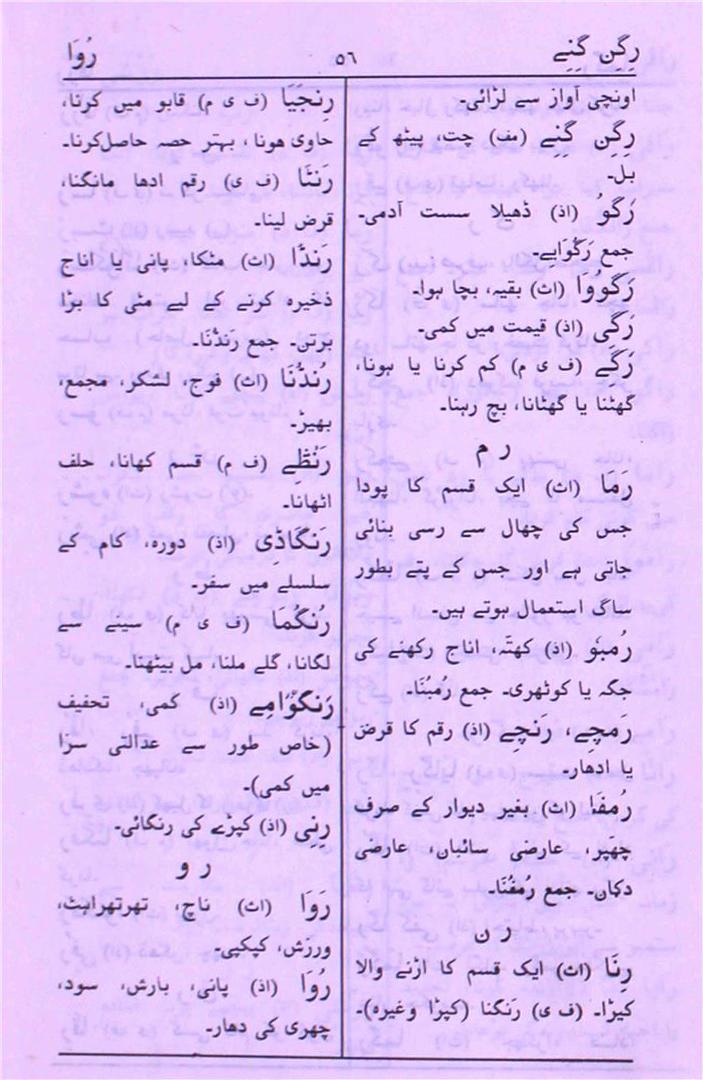 رِگِن گَنِے
٥٦
رُوَا
اونچی آواز سے لڑائی۔
رِگِن گَنِے (مف) چت، پیٹھ کے
بل۔
رَگوُ (اذ) ڈھیلا سست آدمی۔
جمع رَگوَاہے۔
رَگوُوَا (اث) بقیہ، بچا ہوا۔
رَگِی (اذ) قیمت میں کمی۔
رَگے (ف ی م) کم کرنا یا ہونا،
گھٹنا یا گھٹانا، بچ رہنا۔
ر م
رَمَا (اث) ایک قسم کا پودا
جس کی چھال سے رسی بنائی
جاتی ہے اور جس کے پتے بطور
ساگ استعمال ہوتے ہیں۔
رُمبُو (اذ) کھتّہ، اناج رکھنے کی
جگہ یا کوٹھری۔ جمع رُمبُنَا۔
رَمچے، رَنچے (اذ) رقم کا قرض
یا ادھار۔
رُمفَا (اث) بغیر دیوار کے صرف
چھپر، عارضی سائبان، عارضی
دکان۔ جمع رُمفُنَا۔
ر ن
رِنَا (اث) ایک قسم کا اڑنے والا
کیڑا۔ (ف ی) رَنگنا (کپڑا وغیرہ)۔
رِنجَیَا (ف ی م) قابو میں کرنا،
حاوی ہونا، بہتر حصہ حاصل کرنا۔
رنتَا (ف ی) رقم ادھا مانگنا،
قرض لینا۔
رَندَا (اث) مٹکا، پانی یا اناج
ذخیرہ کرنے کے لیے مٹی کا بڑا
برتن۔ جمع رَندُنَا۔
رُندُنَا (اث) فوج، لشکر، مجمع،
بھیڑ۔
رَنطَے (ف م) قسم کھانا، حلف
اٹھانا۔
رَنگَادِی (اذ) دورہ، کام کے
سلسلے میں سفر۔
رُنگُمَا (ف ی م) سینے سے
لگانا، گلے ملنا، مل بیٹھنا۔
رَنگوَامِے (اذ) کمی، تخفیف
(خاص طور سے عدالتی سزا
میں کمی)۔
رِنِی (اذ) کپڑے کی رنگائی۔
ر و
رَوَا (اث) ناچ، تھرتھراہٹ،
ورزش، کپکپی۔
رُوَا (اذ) پانی، بارش، سود،
چھری کی دھار۔